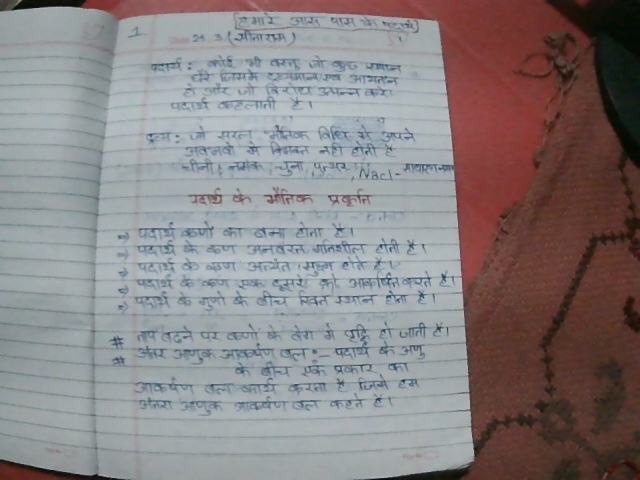 हमारे आस पास के पदार्थ
1
(सीताराम)
पदार्थ : कोई भी वस्तु जो कुछ स्थान
घेरे जिसमें द्रव्यमान एवं आयतन
हो और जो विरोध उत्पन्न करे।
पदार्थ कहलाती है।
द्रव्य : जो सरल भौतिक विधि से अपने
अवयवों में विभक्त नहीं होती है
चीनी, नमक, चुना, पत्थर, Nacl - साधारण नमक
पदार्थ के भौतिक प्रकृति
⇒ पदार्थ कणों का बना होता है।
⇒ पदार्थ के कण अनवरत गतिशील होती है।
⇒ पदार्थ के कण अत्यंत सुक्ष्म होते है।
⇒ पदार्थ के कण एक दूसरे को आकर्षित करते है।
⇒ पदार्थ के गुणों के बीच रिक्त स्थान होता है।
# ताप बढने पर कणों के वेग में वृद्धि हो जाती है।
# अंतर आणुक आकर्षण बल :- पदार्थ के अणु
के बीच एक प्रकार का
आकर्षण बल कार्य करता है जिसे हम
अंतरा आणुक आकर्षण बल कहते है।